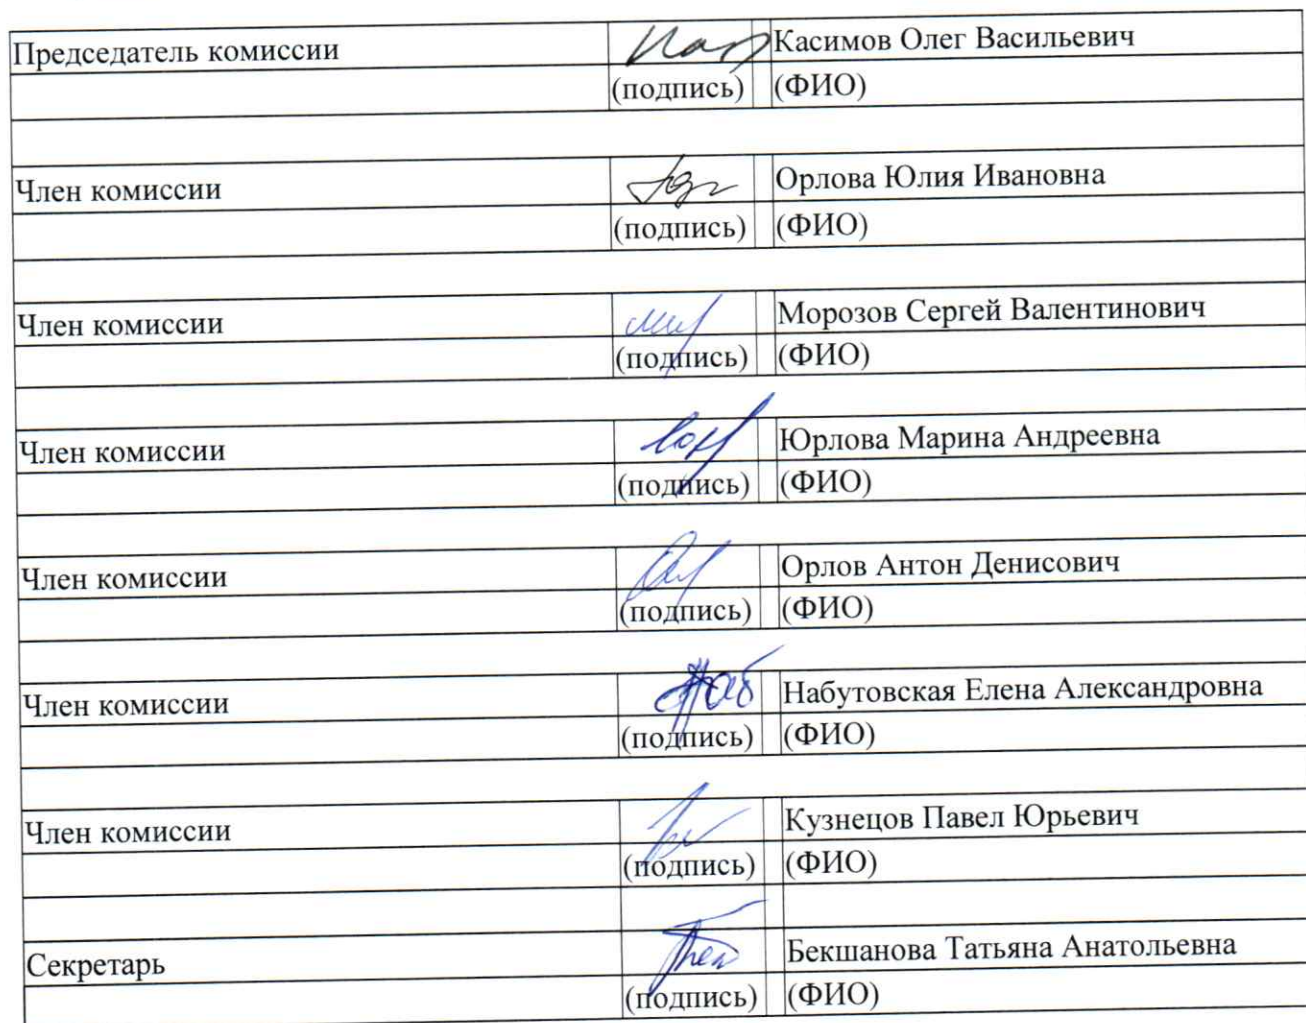 Председатель комиссии Касимов Олег Васильевич
(подпись) (ФИО)
Член комиссии Орлова Юлия Ивановна
(подпись) (ФИО)
Член комиссии Морозов Сергей Валентинович
(подпись) (ФИО)
Член комиссии Юрлова Марина Андреевна
(подпись) (ФИО)
Член комиссии Орлов Антон Денисович
(подпись) (ФИО)
Член комиссии Набутовская Елена Александровна
(подпись) (ФИО)
Член комиссии Кузнецов Павел Юрьевич
(подпись) (ФИО)
Секретарь Бекшанова Татьяна Анатольевна
(подпись) (ФИО)